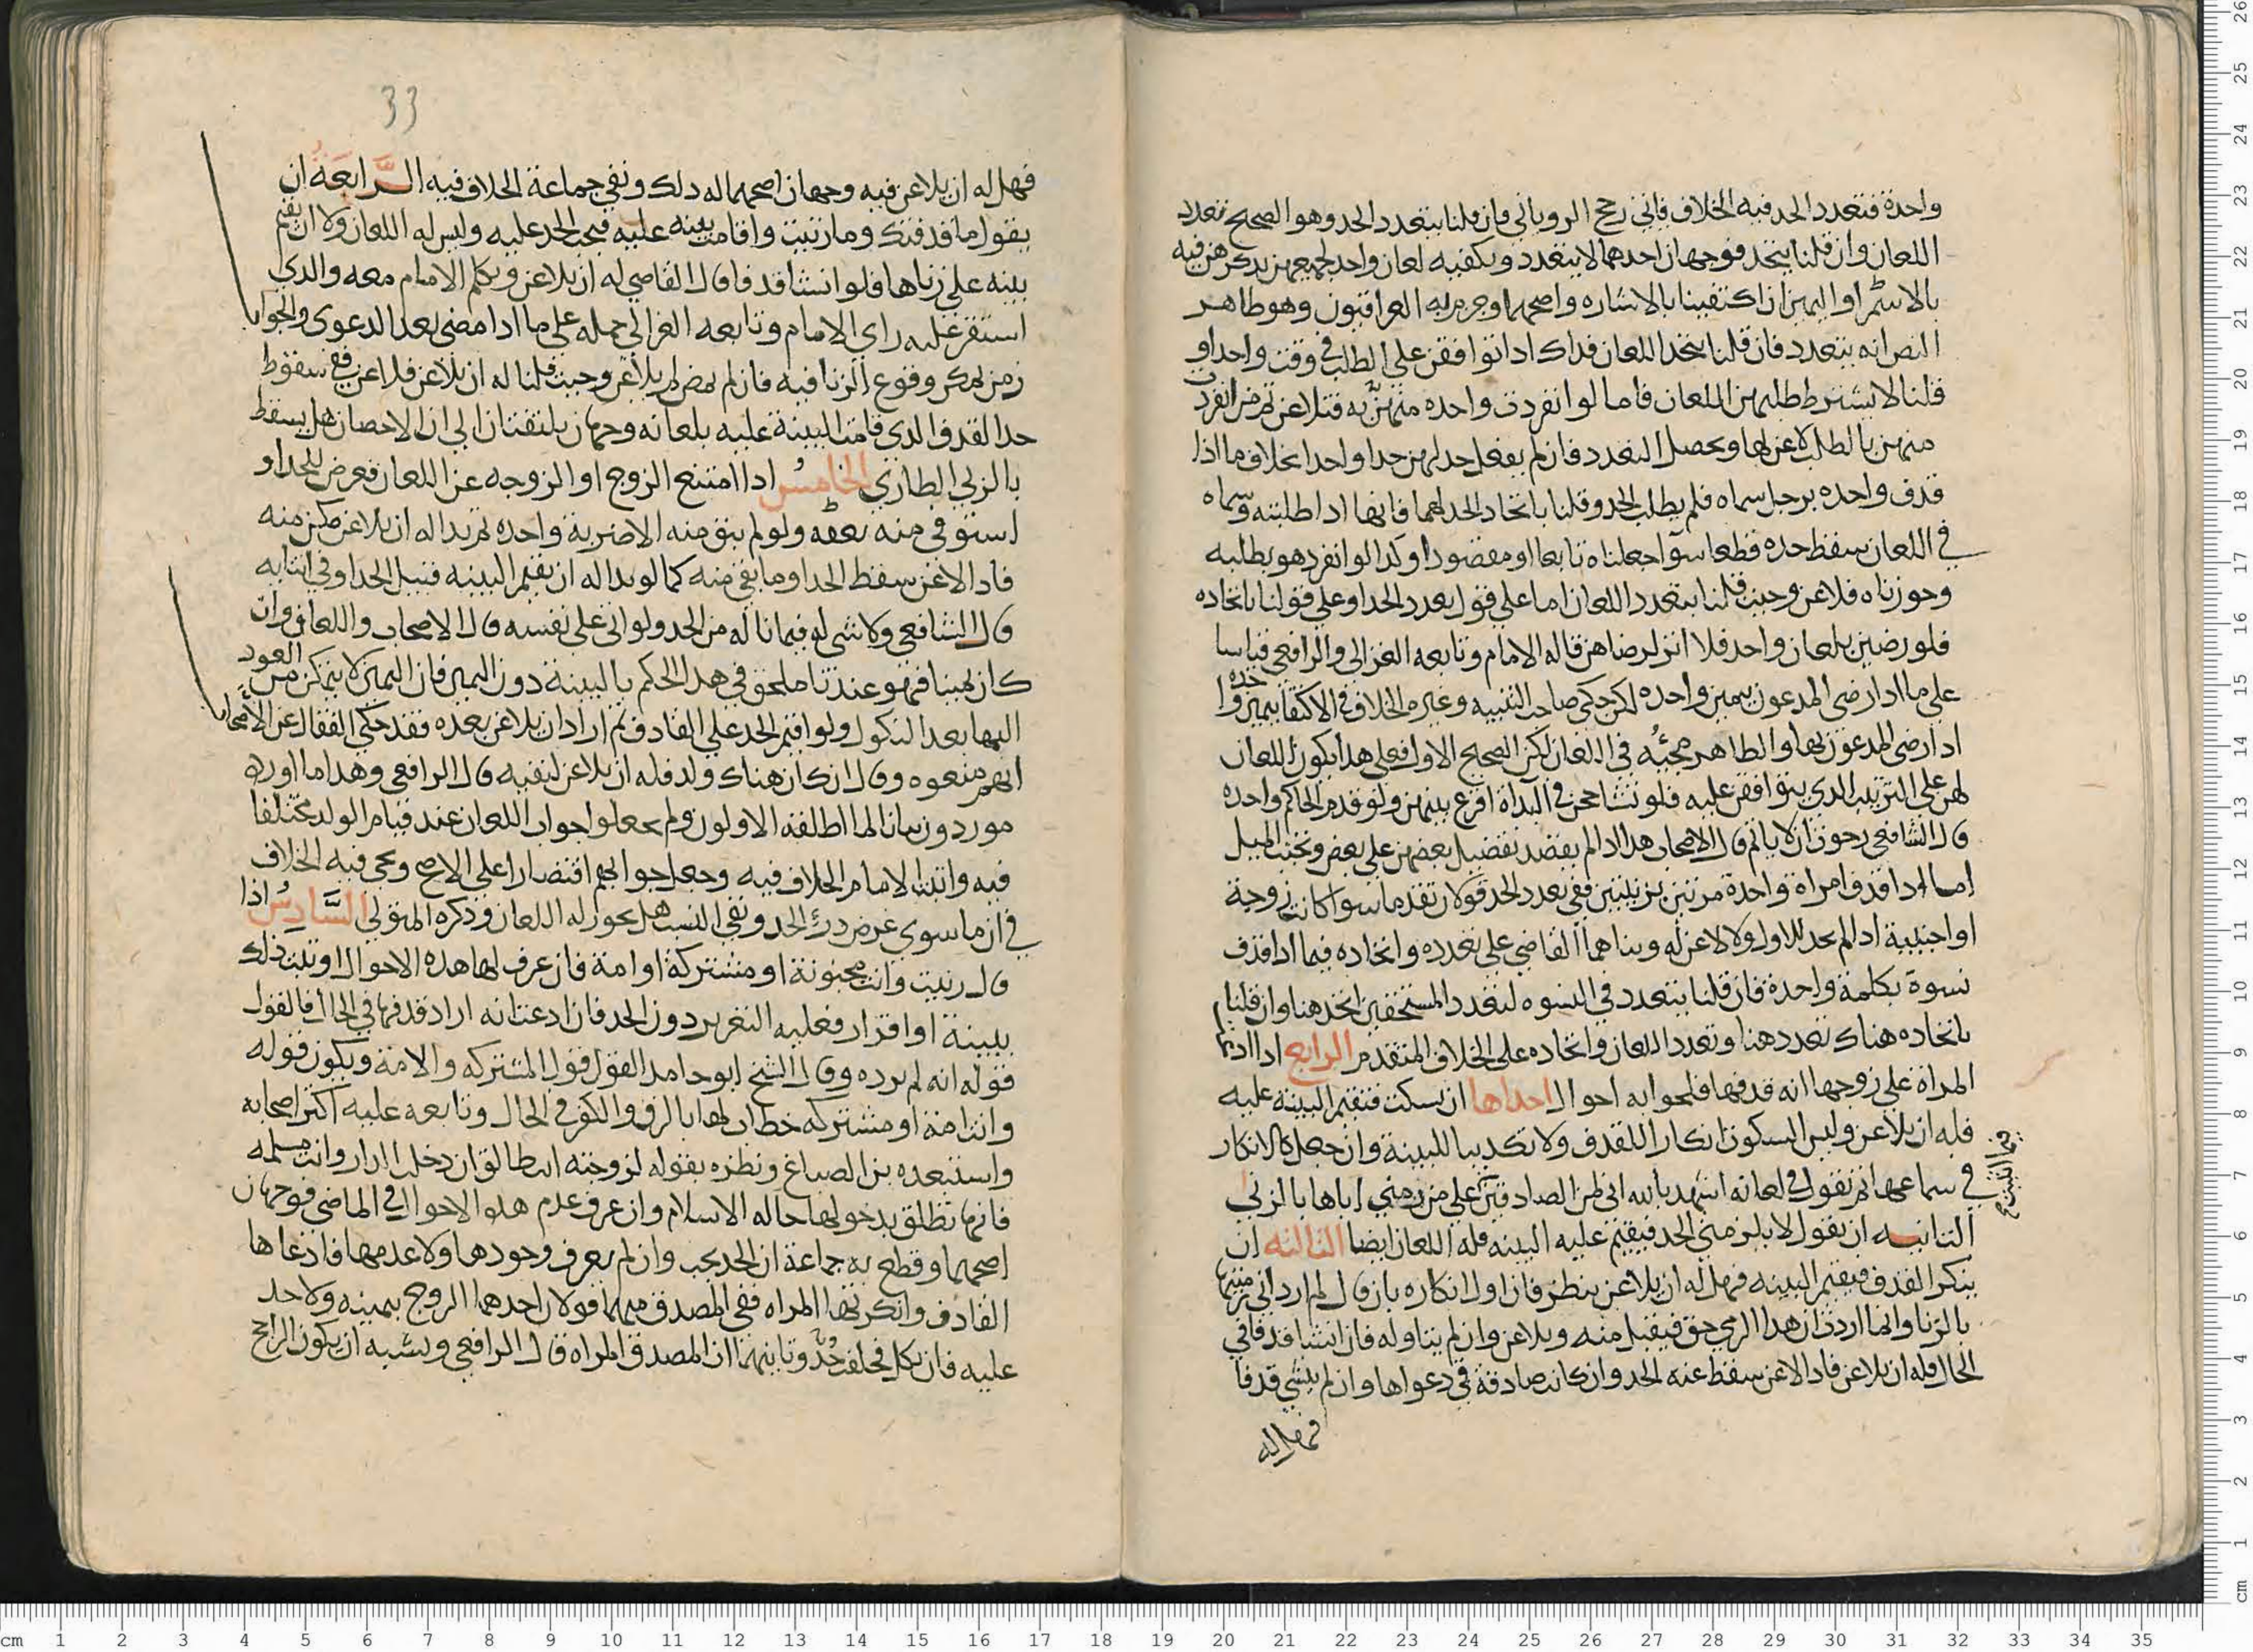 واحدة فتعدد الحد فيه الخلاف فاني رجح الروياني فان قلنا بتعدد الحد وهو الصحيح تعدد
اللعان وان قلنا يتحد فوجهان احدهما لا يتعدد ويكفيه لعان واحد لجميعهن يذكرهن فيه
بالاسم او اليمين ان اكتفينا بالاشاره واصحهما وجزم به العراقيون وهو ظاهر
النص انه يتعدد فان قلنا يتحد اللعان فذاك اذا توافقن على الطلب في وقت واحد او
قلنا لا يشترط طلبهن اللعان فاما لو انفردت واحده منهن به فتلاعن ثم من انفرد
منهن بالطلب لاعن لها ويحصل التعدد فان لم يفعل حد لهن حدا واحدا بخلاف ما اذا
قذف واحده برجل سماه فلم يطلب الحد وقلنا باتحاد الحد لهما فانها اذا طلبته وسماه
في اللعان سقط حده قطعا سوا جعلناه تابعا او مقصودا وكذا لو انفرد هو بطلبه
وجوزناه فلاعن وحيث قلنا بتعدد اللعان اما على قول بعدد الحد او على قولنا باتحاده
فلو رضين بلعان واحد فلا اثر لرضاهن قاله الامام وتابعه الغزالي والرافعي قياسا
على ما اذا رضي المدعون بيمين واحده لكن حكى صاحب التنبيه وغيره الخلاف في الاكتفا بيمين واحده
اذا رضي المدعون بها والظاهر مجيئه في اللعان لكن الصحيح الاول فعلى هذا يكون اللعان
لهن على الترتيب الذي يتوافقن عليه فلو تشاححن في البداة اقرع بينهن ولو قدم الحاكم واحده
قال الشافعي رجوت ان لا ياثم قال الاصحاب هذا اذا لم يقصد تفضيل بعضهن على بعض وتجنب الميل
اما اذا قذف امراة واحدة مرتين بزنيتين ففي تعدد الحد قولان تقدما سوا كانت زوجة
او اجنبية اذا لم يحد للاول ولا لاعن له وبناهما القاضي على تعدده واتحاده فيما اذا قذف
نسوة بكلمة واحدة فان قلنا يتعدد في النسوه لتعدد المستحقين اتحد هنا وان قلنا
باتحاده هناك تعدد هنا وتعدد اللعان واتحاده على الخلاف المتقدم الرابع اذا ادعت
المراة على زوجها انه قذفها فلجوابه احوال احداها ان يسكت فتقيم البينة عليه
فله ان يلاعن وليس السكوت انكار اللقذف ولا تكذيبا للبينة وان جعل كالانكار
في سماعها ثم تقول في لعانه اشهد بالله اني لمن الصادقين على من رمتني اياها بالزنى
الثانيه ان يقول لا يلزمني الحد فيقيم عليه البينه فله اللعان ايضا الثالثه ان
ينكر القذف فيقيم البينه فهل له ان يلاعن ينظر فان اول انكاره بان قال لم ارد اني رميتها
بالزنا وانما اردت ان هذا الرمي حق فيقبل منه ويلاعن وان لم يتاوله فان انشا قذفا في
الحال فله ان يلاعن فاذا لاعن سقط عنه الحد وان كانت صادقة في دعواها وان لم ينشي قذفا
فهل له
33
فهل له ان يلاعن فيه وجهان اصحهما له ذلك ونفى جماعة الخلاف فيه الرابعة ان
يقول ما قذفتك وما زنيت واقامت بينه عليه فيجب الحد عليه وليس له اللعان ولا ان يقيم
بينه على زناها فلو انشا قذفا قال القاضي له ان يلاعن وتكلم الامام معه والذي
استقر عليه راي الامام وتابعه الغزالي حمله على ما اذا مضى بعد الدعوى والجواب
زمن يمكن وقوع الزنا فيه فان لم يمض لم يلاعن وحيث قلنا له ان يلاعن فلاعن ففي سقوط
حد القذف الذي قامت البينة عليه بلعانه وجهان يلتفتان الى ان الاحصان هل يسقط
بالزنى الطاري الخامس اذا امتنع الزوج او الزوجه عن اللعان فعرض للحد او
استوفي منه بعضه ولو لم يبق منه الا ضربة واحده ثم بدا له ان يلاعن مكن منه
فاذا لاعن سقط الحد او ما بقي منه كما لو بدا له ان يقيم البينه قبيل الحد او في اثنايه
قال الشافعي ولا شي له فيما ناله من الحد ولو اتى على نفسه قال الاصحاب واللعان وان
كان يمينا فهو عندنا ملحق في هذا الحكم بالبينة دون اليمين فان اليمين لا يتمكن من العود
اليها بعد النكول ولو اقيم الحد على القاذف ثم اراد ان يلاعن بعده فقد حكى القفال عن الاصحاب
انهم منعوه وقال ان كان هناك ولد فله ان يلاعن لنفيه قال الرافعي وهذا ما اورده
موردون بيانا لما اطلقه الاولون ولم يجعلوا جواب اللعان عند قيام الولد مختلفا
فيه واثبت الامام الخلاف فيه وجعل جوابهم اقتصارا على الاصح ويجي فيه الخلاف
في ان ما سوي غرض درء الحد ونفي النسب هل يجوز له اللعان وذكره المتولي السادس اذا
قال زنيت وانت مجنونة او مشتركة او امة فان عرف لها هذه الاحوال او ثبت ذلك
ببينة او اقرار فعليه التعزير دون الحد فان ادعت انه اراد قذفها في الحال فالقول
قوله انه لم يرده وقال الشيخ ابو حامد القول قول المشتركه والامة ويكون قوله
وانت امة او مشتركه خطاب لها بالرق والكفر في الحال وتابعه عليه اكثر اصحابه
واستبعده بن الصباغ ونظره بقوله لزوجته انت طالق ان دخلت الدار وانت مسلمه
فانها تطلق بدخولها حاله الاسلام وان عرف عدم هذه الاحوال في الماضي فوجهان
اصحهما وقطع به جماعة ان الحد يجب وان لم يعرف وجودها ولا عدمها فادعاها
القاذف وانكرتها المراه ففي المصدق منهما قولان احدهما الزوج بيمينه ولا حد
عليه فان نكل فحلفت حد وثانيهما ان المصدق المراه قال الرافعي ويشبه ان يكون الراجح